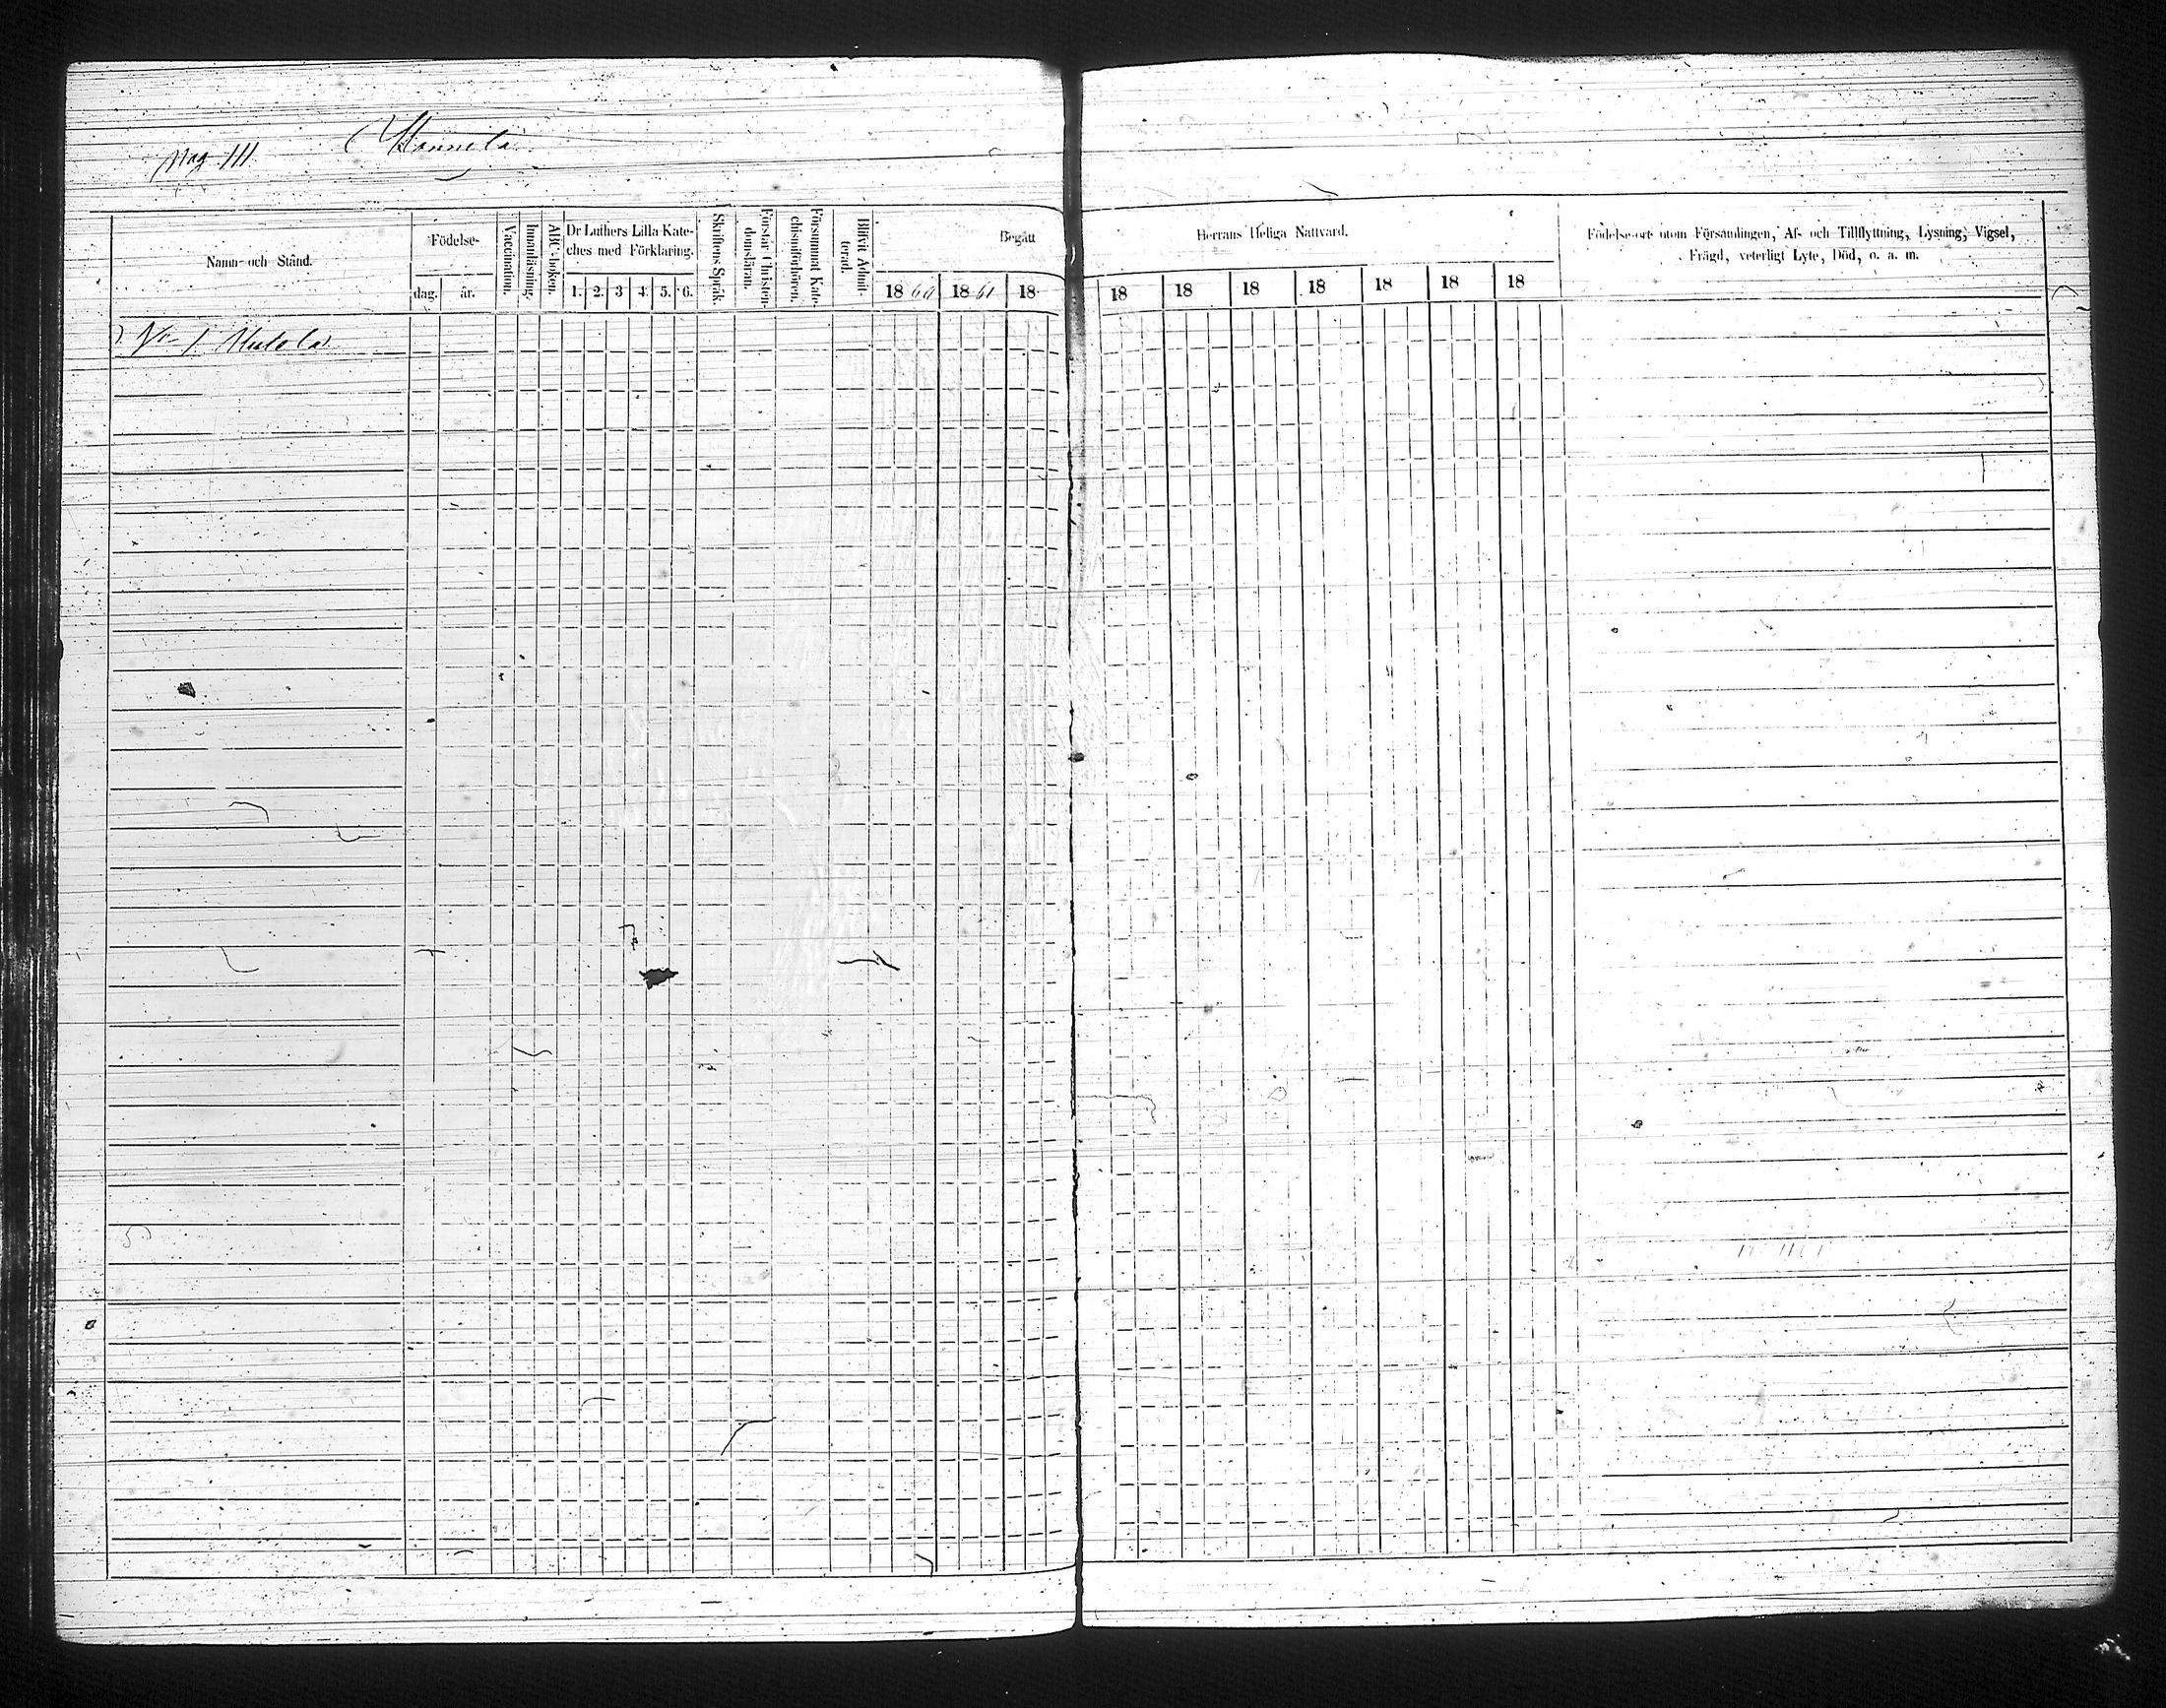 pag 111. Hannula
Namn och Stånd.
Födelse-
dag. år.
Vaccination.
Innanläsning.
ABC-boken.
Dr Luthers Lilla Kate-
ches med Förklaring.
1. 2. 3 4. 5. 6.
Skriftens Språk.
Förstår Christen-
domsläran.
Försummat Kate-
chismiförhören.
Blifvit Admit-
terad.
Begått
1860 1861 18
Herrans Heliga Nattvard.
18 18 18 18 18 18 18
Födelse-ort utom Församlingen, Af- och Tillflyttning, Lysning, Vigsel,
Frägd, veterligt Lyte, Död, o. a. m.
No 1